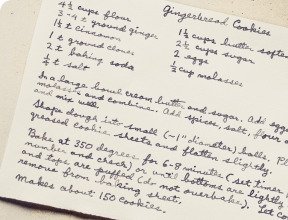 Gingerbread Cookies
4½ cups flour
3-4 t ground ginger
1½ t cinnamon
1 t ground cloves
2 t baking soda
¼ t salt
1½ cups butter, softe
2½ cups sugar
2 eggs
½ cup molasses
In a large bowl cream butter and sugar. Add eggs
molasses and combine. Add spices, salt, flour
and mix well.
Shape dough into small (~1" diameter) balls. Pl
greased cookie sheets and flatten slightly.
Bake at 350 degrees for 6-8 minutes (set timer
number and check) or until bottoms are lightly
and tops are puffed (do not overbake). Let co
remove from baking sheet.
Makes about 150 cookies.